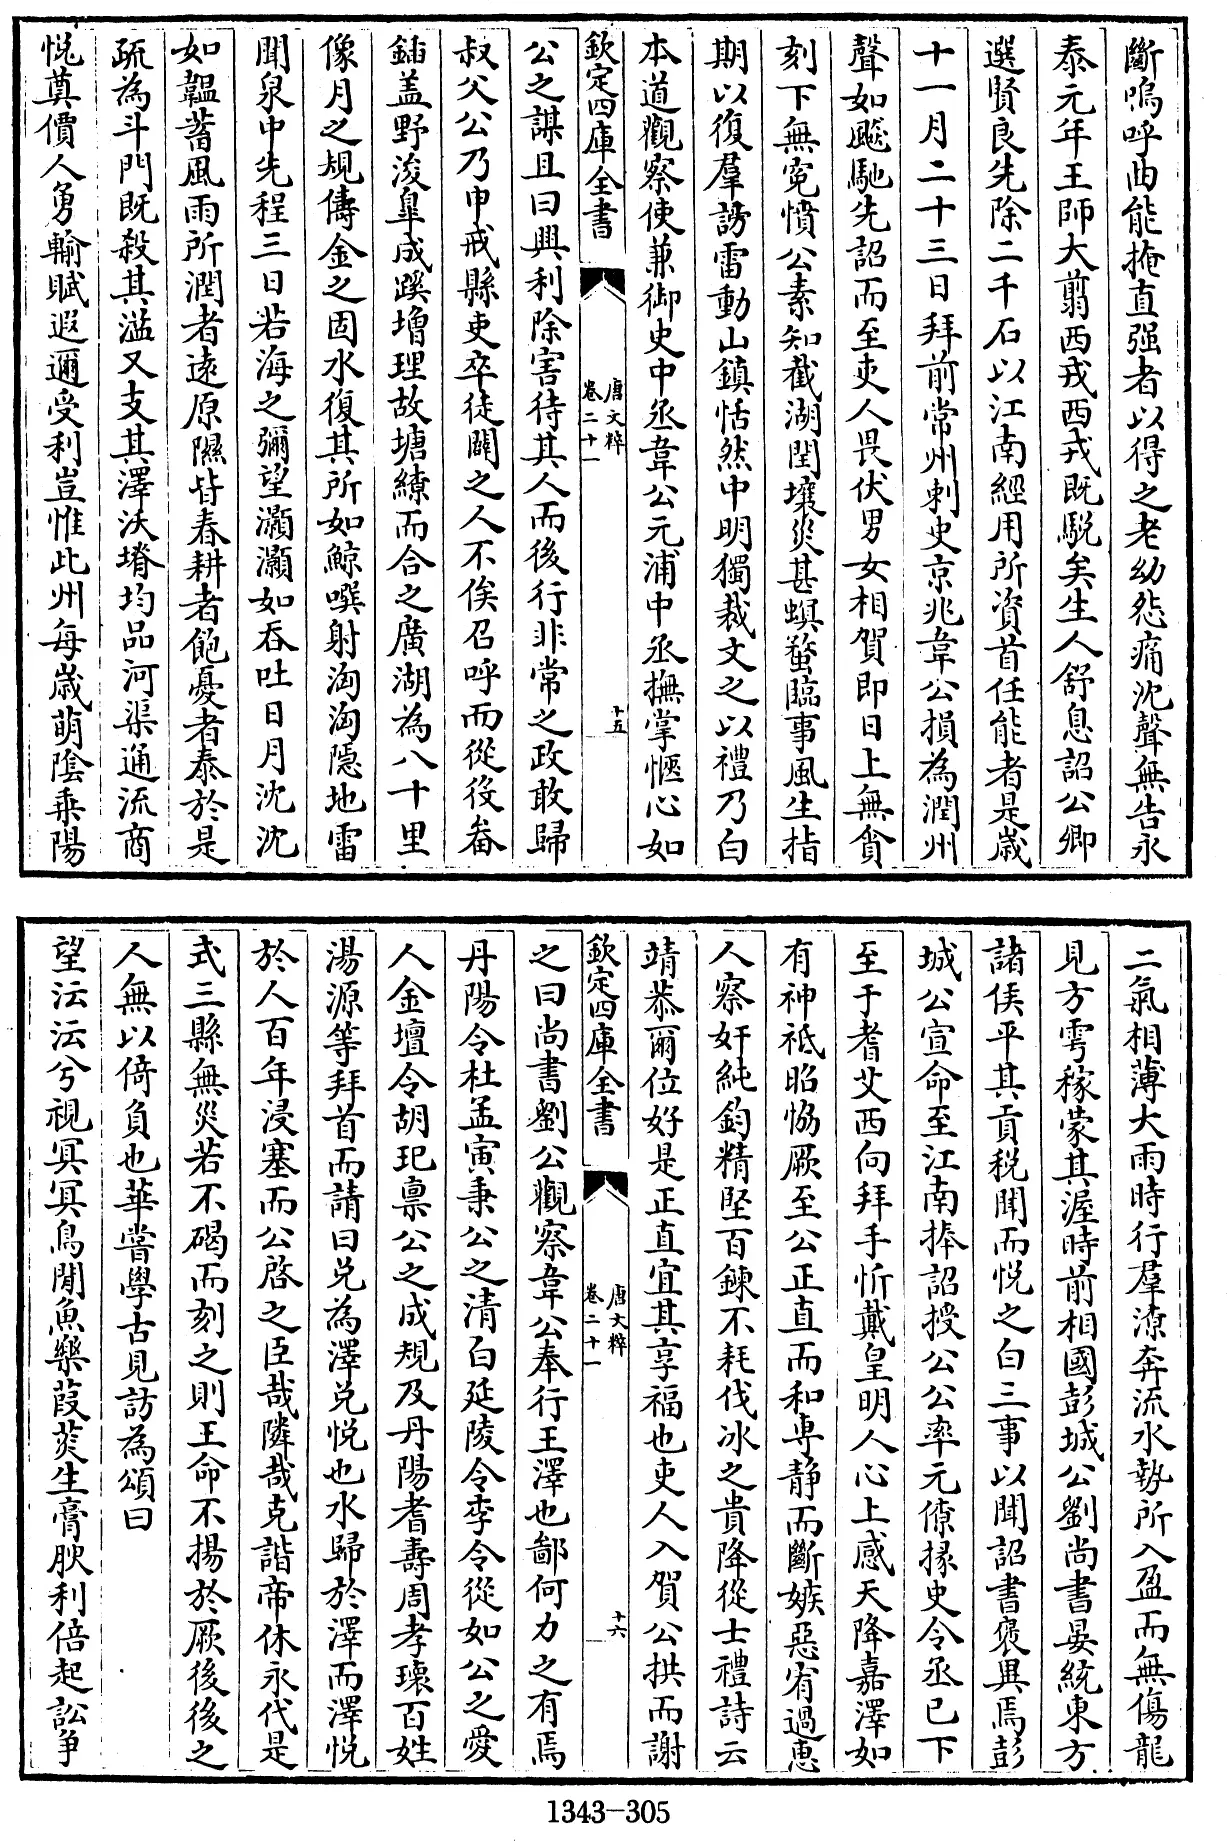 斷嗚呼曲能掩直强者以得之老幼怨痛沈聲無告永
泰元年王師大翦西戎西戎既駾矣生人舒息詔公卿
選賢良先除二千石以江南經用所資首任能者是歲
十一月二十三日拜前常州刺史京兆韋公損為潤州
聲如飈馳先詔而至吏人畏伏男女相賀即日上無貪
刻下無寃憤公素知截湖閏壤災甚螟蝥臨事風生指
期以復羣謗雷動山鎮恬然中明獨裁文之以禮乃白
本道觀察使兼御史中丞韋公元浦中丞撫掌愜心如
欽定四庫全書
唐文粹
卷二十一
十五
公之謀且曰興利除害待其人而後行非常之政敢歸
叔父公乃申戒縣吏卒徒闢之人不俟召呼而從役畚
鍤盖野浚臯成蹊増理故塘繚而合之廣湖為八十里
像月之規儔金之固水復其所如鯨噀射洶洶隱地雷
聞泉中先程三日若海之彌望灝灝如吞吐日月沈沈
如韞蓄風雨所潤者遠原隰皆春耕者飽憂者泰於是
疏為斗門既殺其溢又支其澤沃塉均品河渠通流商
悅奠價人勇輸賦遐邇受利豈惟此州每歲萌陰乗陽
二氣相薄大雨時行羣潦奔流水勢所入盈而無傷龍
見方雩稼蒙其渥時前相國彭城公劉尚書晏統東方
諸侯平其貢稅聞而悅之白三事以聞詔書褒異焉彭
城公宣命至江南捧詔授公公率元僚掾史令丞已下
至于耆艾西向拜手忻戴皇明人心上感天降嘉澤如
有神祇昭恊厥至公正直而和専静而斷嫉惡宥過惠
人察奸純鈞精堅百鍊不耗伐冰之貴降從士禮詩云
靖恭爾位好是正直宜其享福也吏人入賀公拱而謝
欽定四庫全書
唐文粹
卷二十一
十六
之曰尚書劉公觀察韋公奉行王澤也鄙何力之有焉
丹陽令杜孟寅秉公之清白延陵令李令從如公之愛
人金壇令胡玘禀公之成規及丹陽耆壽周孝瓌百姓
湯源等拜首而請曰兑為澤兑悅也水歸於澤而澤悅
於人百年浸塞而公啓之臣哉隣哉克諧帝休永代是
式三縣無災若不碣而刻之則王命不揚於厥後後之
人無以倚負也華嘗學古見訪為頌曰
望沄沄兮視冥冥鳥閒魚樂葭菼生膏腴利倍起訟爭
1343-305